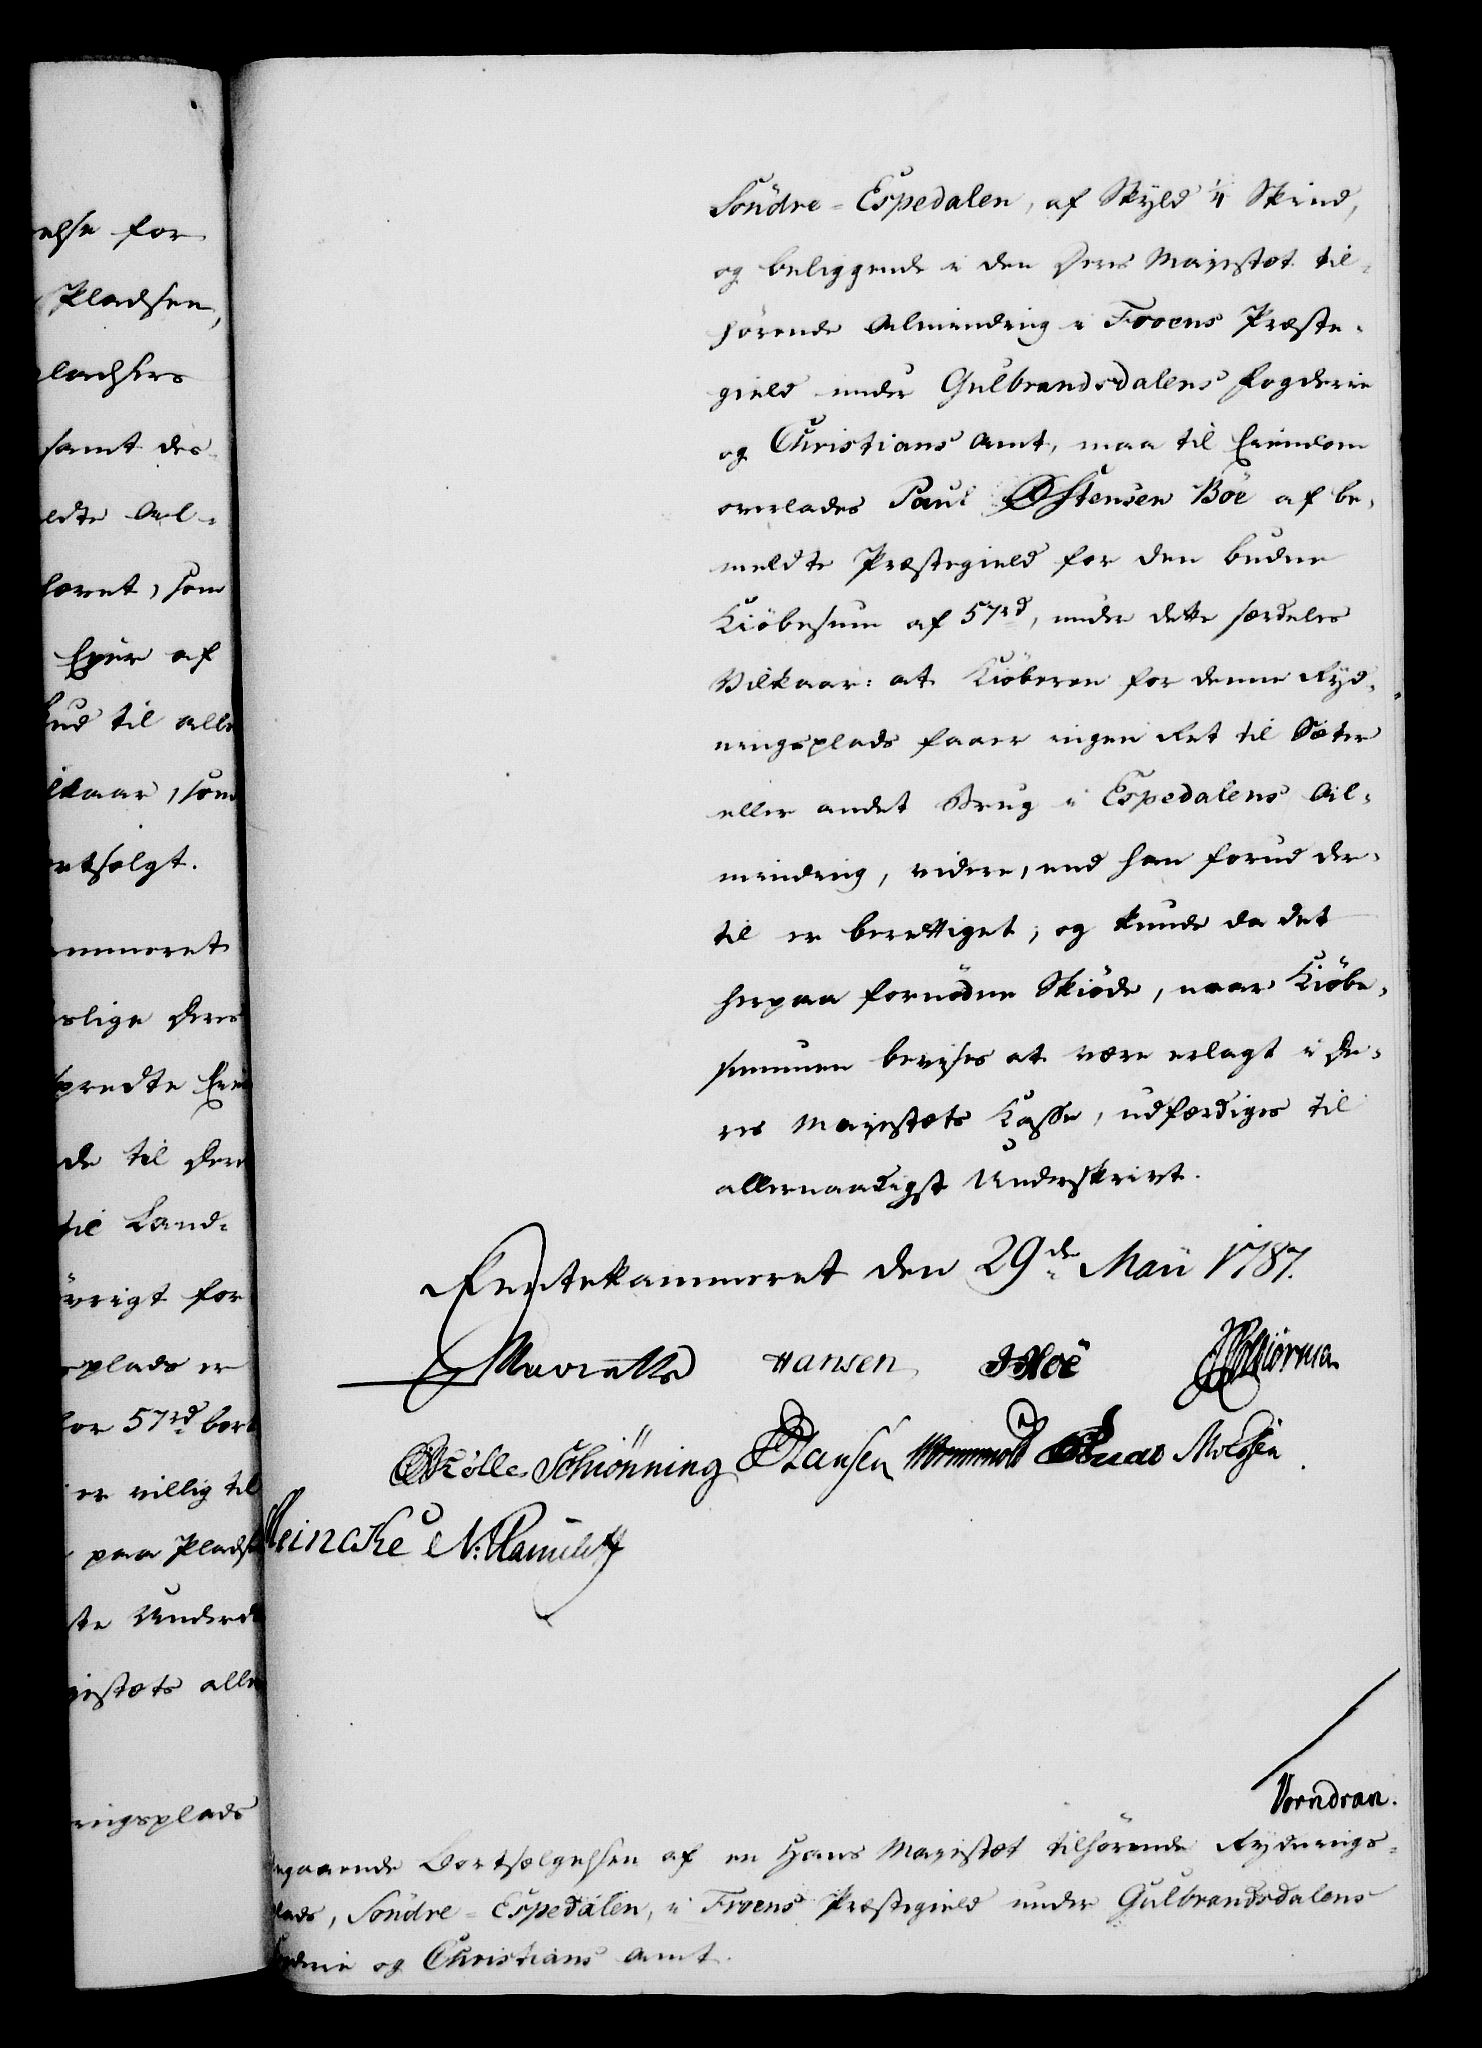 else for
Pladsen,
ladsers
samt des-
eldte Al-
som
Eyer af
bud til aller
ilkaar, som
ortsolgt.
ammeret
slige Deres
spredte
de til Deres
til Land-
övrigt for
splads er
for 57rd bort
er villig til
paa Pladsen
ste Underd
jestæts aller
ningsplads
Söndre-Espedalen, af Skyld 1/4 Skind,
og beliggende i den Deres Majestæt til-
hörende Almindng i Froens Præste-
gield under Gulbrandsdalens Fogderie
og Christians Amt, maa til Eiendom
overlades Paul Østensen Böe af be-
meldte Præstegield for den budne
Kiöbesum af 57rd, under dette særdeles
Vilkaar: at Kiöberen for denne Ryd-
ningsplads faaer ingen Ret til Sæter
eller andet Brug i Espedalens Al-
minding, videre, end han forud der-
til er berettiget; og kunde da det
herpaa fornödne Skiöde, naar Kiöbe-
summen bevises at være erlagt i De-
res Majestæts Casse, udfærdiges til
allernaadigst Underskrivt.
Rentekammeret den 29de Maii 1787.
Hansen
Schiönning Hansen
Meincke
Vorndran.
angaaende Bortsælgelsen af en Hans Majestæt tilhörende Rydnings-
plads, Söndre-Espedalen, i Froens Præstegield under Gulbrandsdalens
Fogderie og Christians Amt.